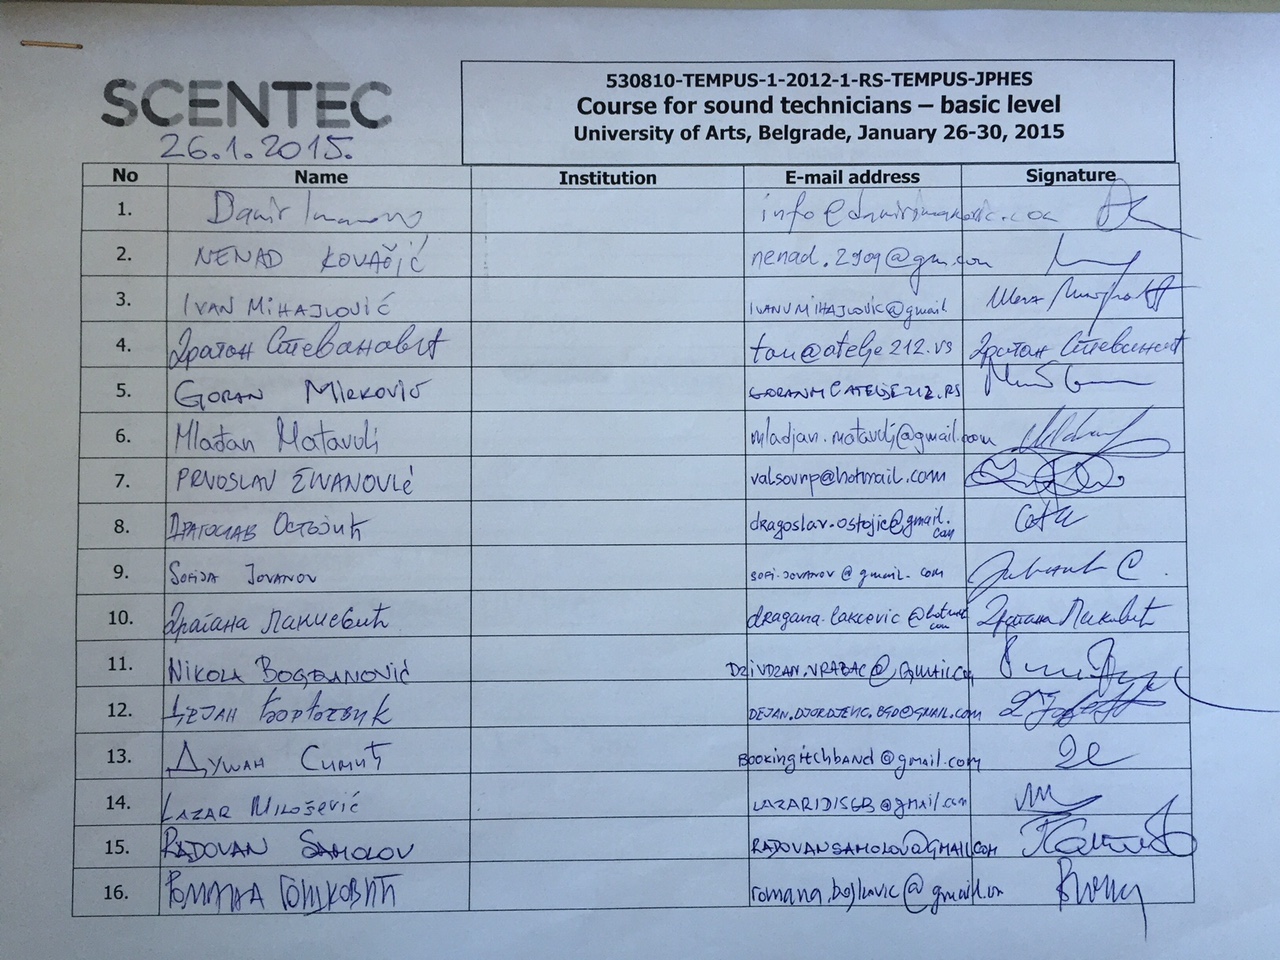 SCENTEC
26.1.2015.
530810-TEMPUS-1-2012-1-RS-TEMPUS-JPHES
Course for sound technicians – basic level
University of Arts, Belgrade, January 26-30, 2015
No Name Institution E-mail address Signature
1. Damir
2. NENAD KOVAČIĆ nenad.2909@gm.com
3. IVAN MIHAJLOVIĆ IVANVMIHAJLOVIC@gmail
4. Драган Стевановић ton@atelje212.rs Драган Стевановић
5. GORAN Mleković GORANM@ATELJE212.RS
6. Mlađan Matavulj mladjan.matavulj@gmail.com
7. PRVOSLAV valsovnp@hotmail.com
8. Драгослав Остојић dragoslav.ostojic@gmail.com
9. SOFIJA JOVANOV SOFI.JOVANOV@gmail.com
10. Драгана dragana.lakcevic@hotmail.com Драгана
11. NIKOLA BOGDANOVIĆ DZIVDZAN.VRABAC@GMAIL.COM
12. ДЕЈАН DEJAN.DJORDJEVIC.BGD@GMAIL.COM
13. Душан Симић Bookingitchband@gmail.com
14. LAZAR MILOŠEVIĆ LAZARIDISGB@gmail.com
15. RADOVAN SAMOLOV RADOVANSAMOLOV@GMAIL.COM
16. РОМАНА БОШКОВИЋ romana.boskovic@gmail.com